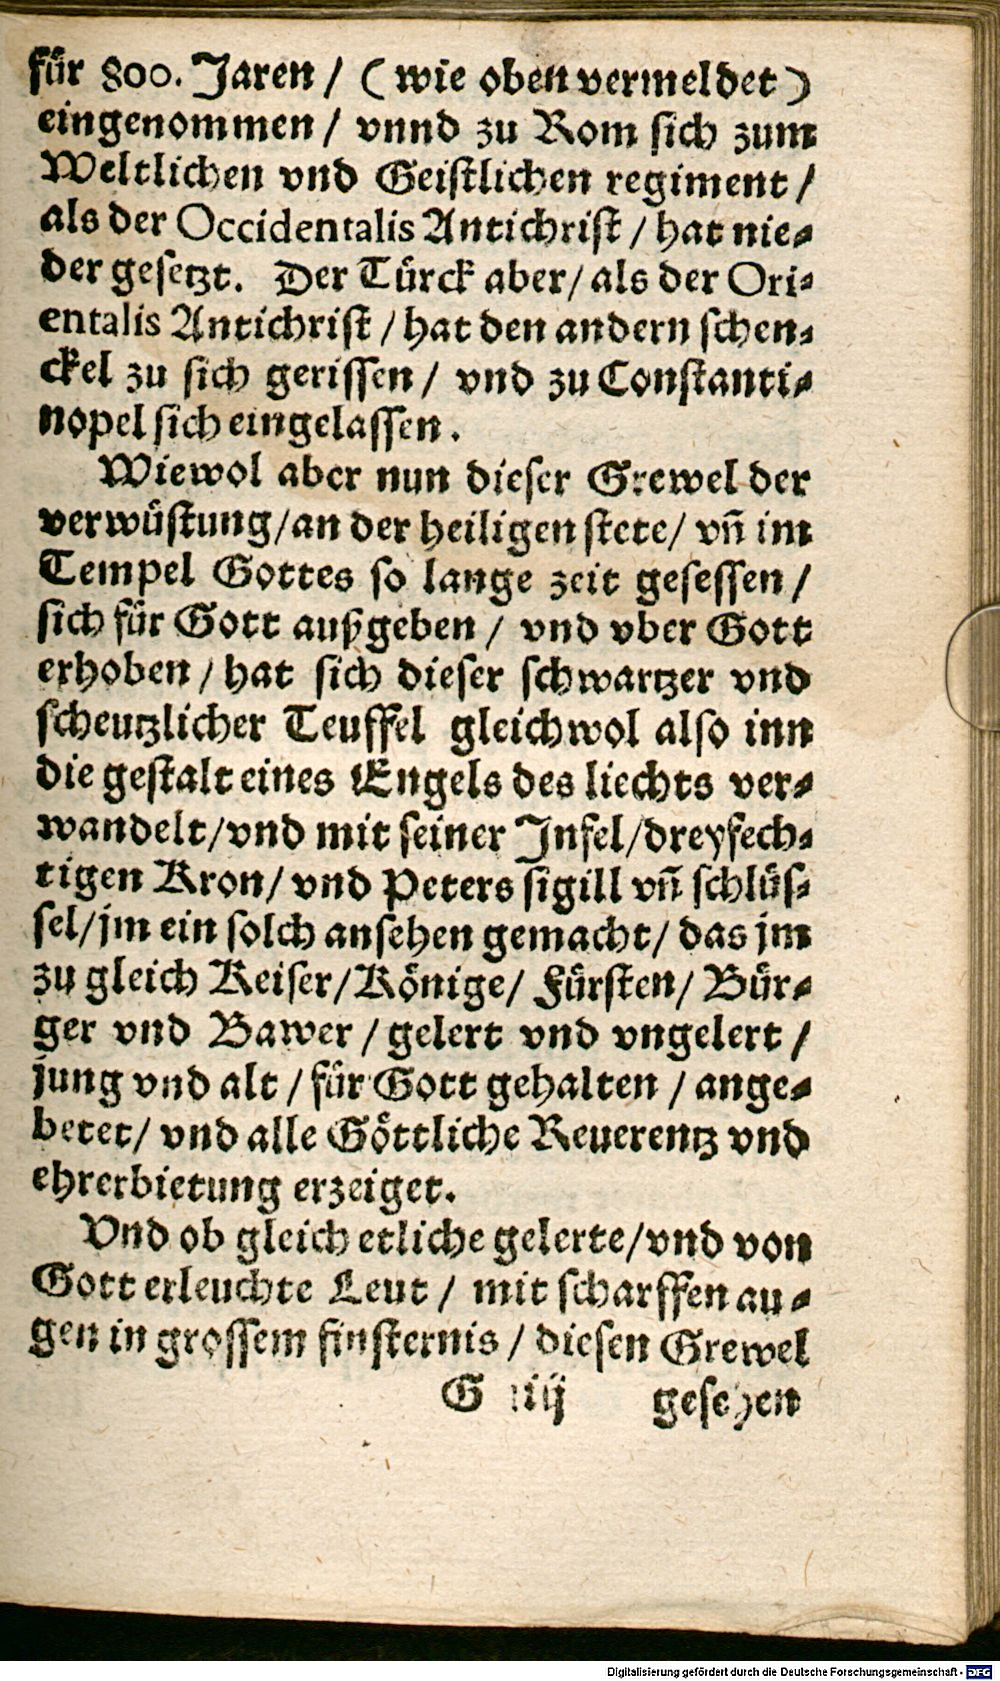 für 800. Jaren / (wie oben vermeldet)
eingenommen / vnnd zu Rom sich zum
Weltlichen vnd Geistlichen regiment /
als der Occidentalis Antichrist / hat nie-
der gesetzt. Der Türck aber / als der Ori-
entalis Antichrist / hat den andern schen-
ckel zu sich gerissen / vnd zu Constanti-
nopel sich eingelassen.
Wiewol aber nun dieser Grewel der
verwüstung / an der heiligen stete / vñ im
Tempel Gottes so lange zeit gesessen /
sich für Gott außgeben / vnd vber Gott
erhoben / hat sich dieser schwartzer vnd
scheutzlicher Teuffel gleichwol also inn
die gestalt eines Engels des liechts ver-
wandelt / vnd mit seiner Infel / dreyfech-
tigen Kron / vnd Peters sigill vñ schlüs-
sel / jm ein solch ansehen gemacht / das jm
zu gleich Keiser / Könige / Fürsten / Bür-
ger vnd Bawer / gelert vnd vngelert /
jung vnd alt / für Gott gehalten / ange-
betet / vnd alle Göttliche Reuerentz vnd
ehrerbietung erzeiget.
Vnd ob gleich etliche gelerte / vnd von
Gott erleuchte Leut / mit scharffen au-
gen in grossem finsternis / diesen Grewel
G iiij gesehen
Digitalisierung gefördert durch die Deutsche Forschungsgemeinschaft - DFG